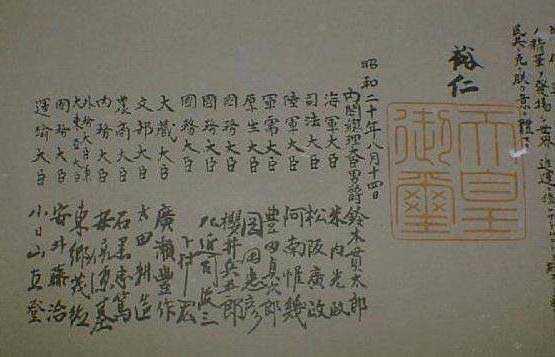 ノ精華ヲ發揚シ世界ノ進運
民其レ克ク朕カ意ヲ體セヨ
裕仁
天皇
御璽
昭和二十年八月十四日
内閣總理大臣男爵鈴木貫太郎
海軍大臣 米内光政
司法大臣 松阪廣政
陸軍大臣 阿南惟幾
軍需大臣 豊田貞次郎
厚生大臣 岡田忠彦
國務大臣 櫻井兵五郎
國務大臣 左近司政三
國務大臣 下村宏
大藏大臣 廣瀬豊作
文部大臣 太田耕造
農商大臣 石黒忠篤
内務大臣 安倍源基
外務大臣兼
大東亞大臣 東郷茂徳
國務大臣 安井藤治
運輸大臣 小日山直登